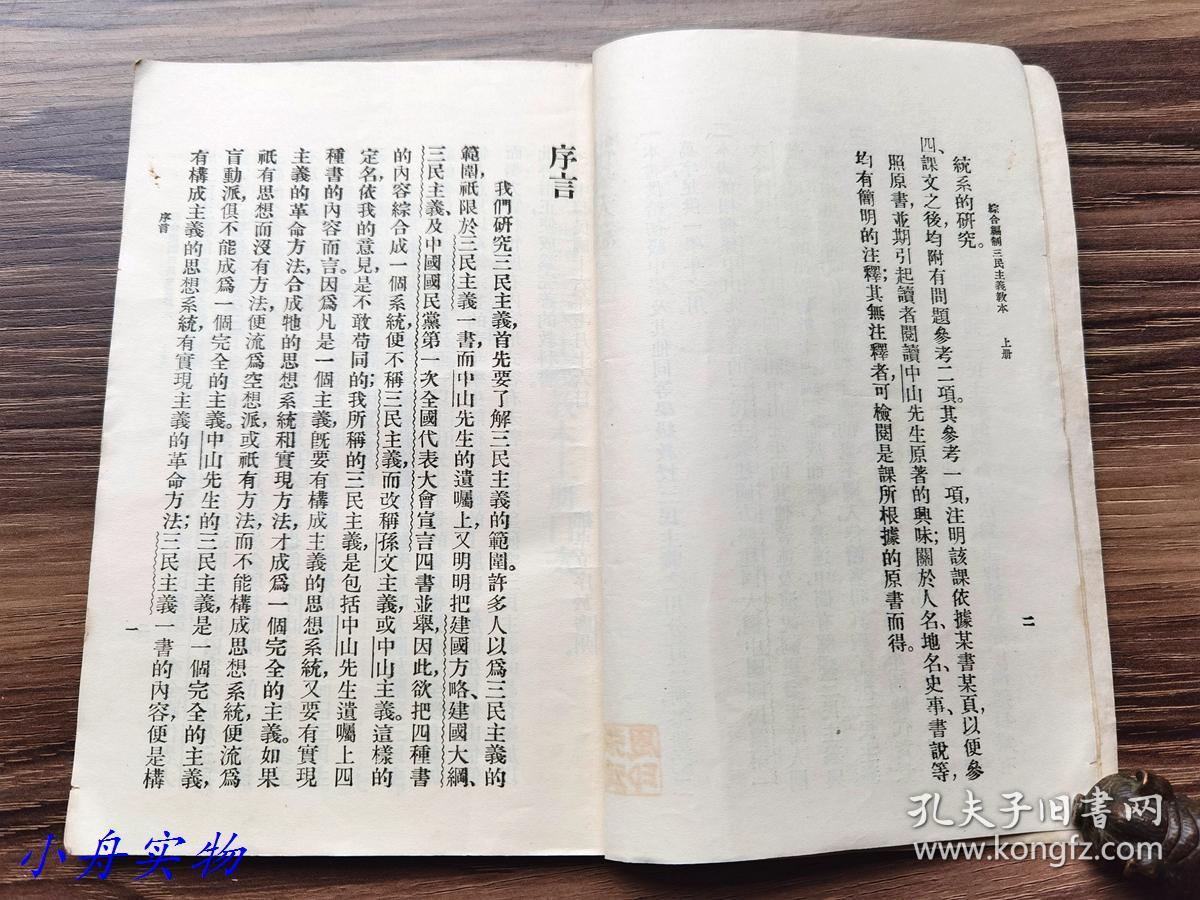 綜合編制三民主義教本　上册
二
統系的研究。
四、課文之後均附有問題參考二項。其參考一項，注明該課依據某書某頁，以便參
照原書並期引起讀者閱讀中山先生原著的興味；關於人名、地名、史事、書說等，
均有簡明的注釋；其無注釋者可檢閱是課所根據的原書而得。
序言
我們研究三民主義，首先要了解三民主義的範圍。許多人以爲三民主義的
範圍，祇限於三民主義一書，而中山先生的遺囑上，又明明把建國方略、建國大綱、
三民主義、及中國國民黨第一次全國代表大會宣言四書並舉，因此，欲把四種書
的內容綜合成一個系統便不稱三民主義，而改稱孫文主義，或中山主義。這樣的
定名，依我的意見是不敢苟同的；我所稱的三民主義是包括中山先生遺囑上四
種書的內容而言。因爲凡是一個主義，旣要有構成主義的思想系統，又要有實現
主義的革命方法，合成牠的思想系統和實現方法，才成爲一個完全的主義。如果
祇有思想而沒有方法，便流爲空想派，或祇有方法，而不能構成思想系統，便流爲
盲動派，俱不能成爲一個完全的主義。中山先生的三民主義，是一個完全的主義，
有構成主義的思想系統，有實現主義的革命方法；三民主義一書的內容，便是構
序言
一
孔夫子旧书网
www.kongfz.com
小舟实物